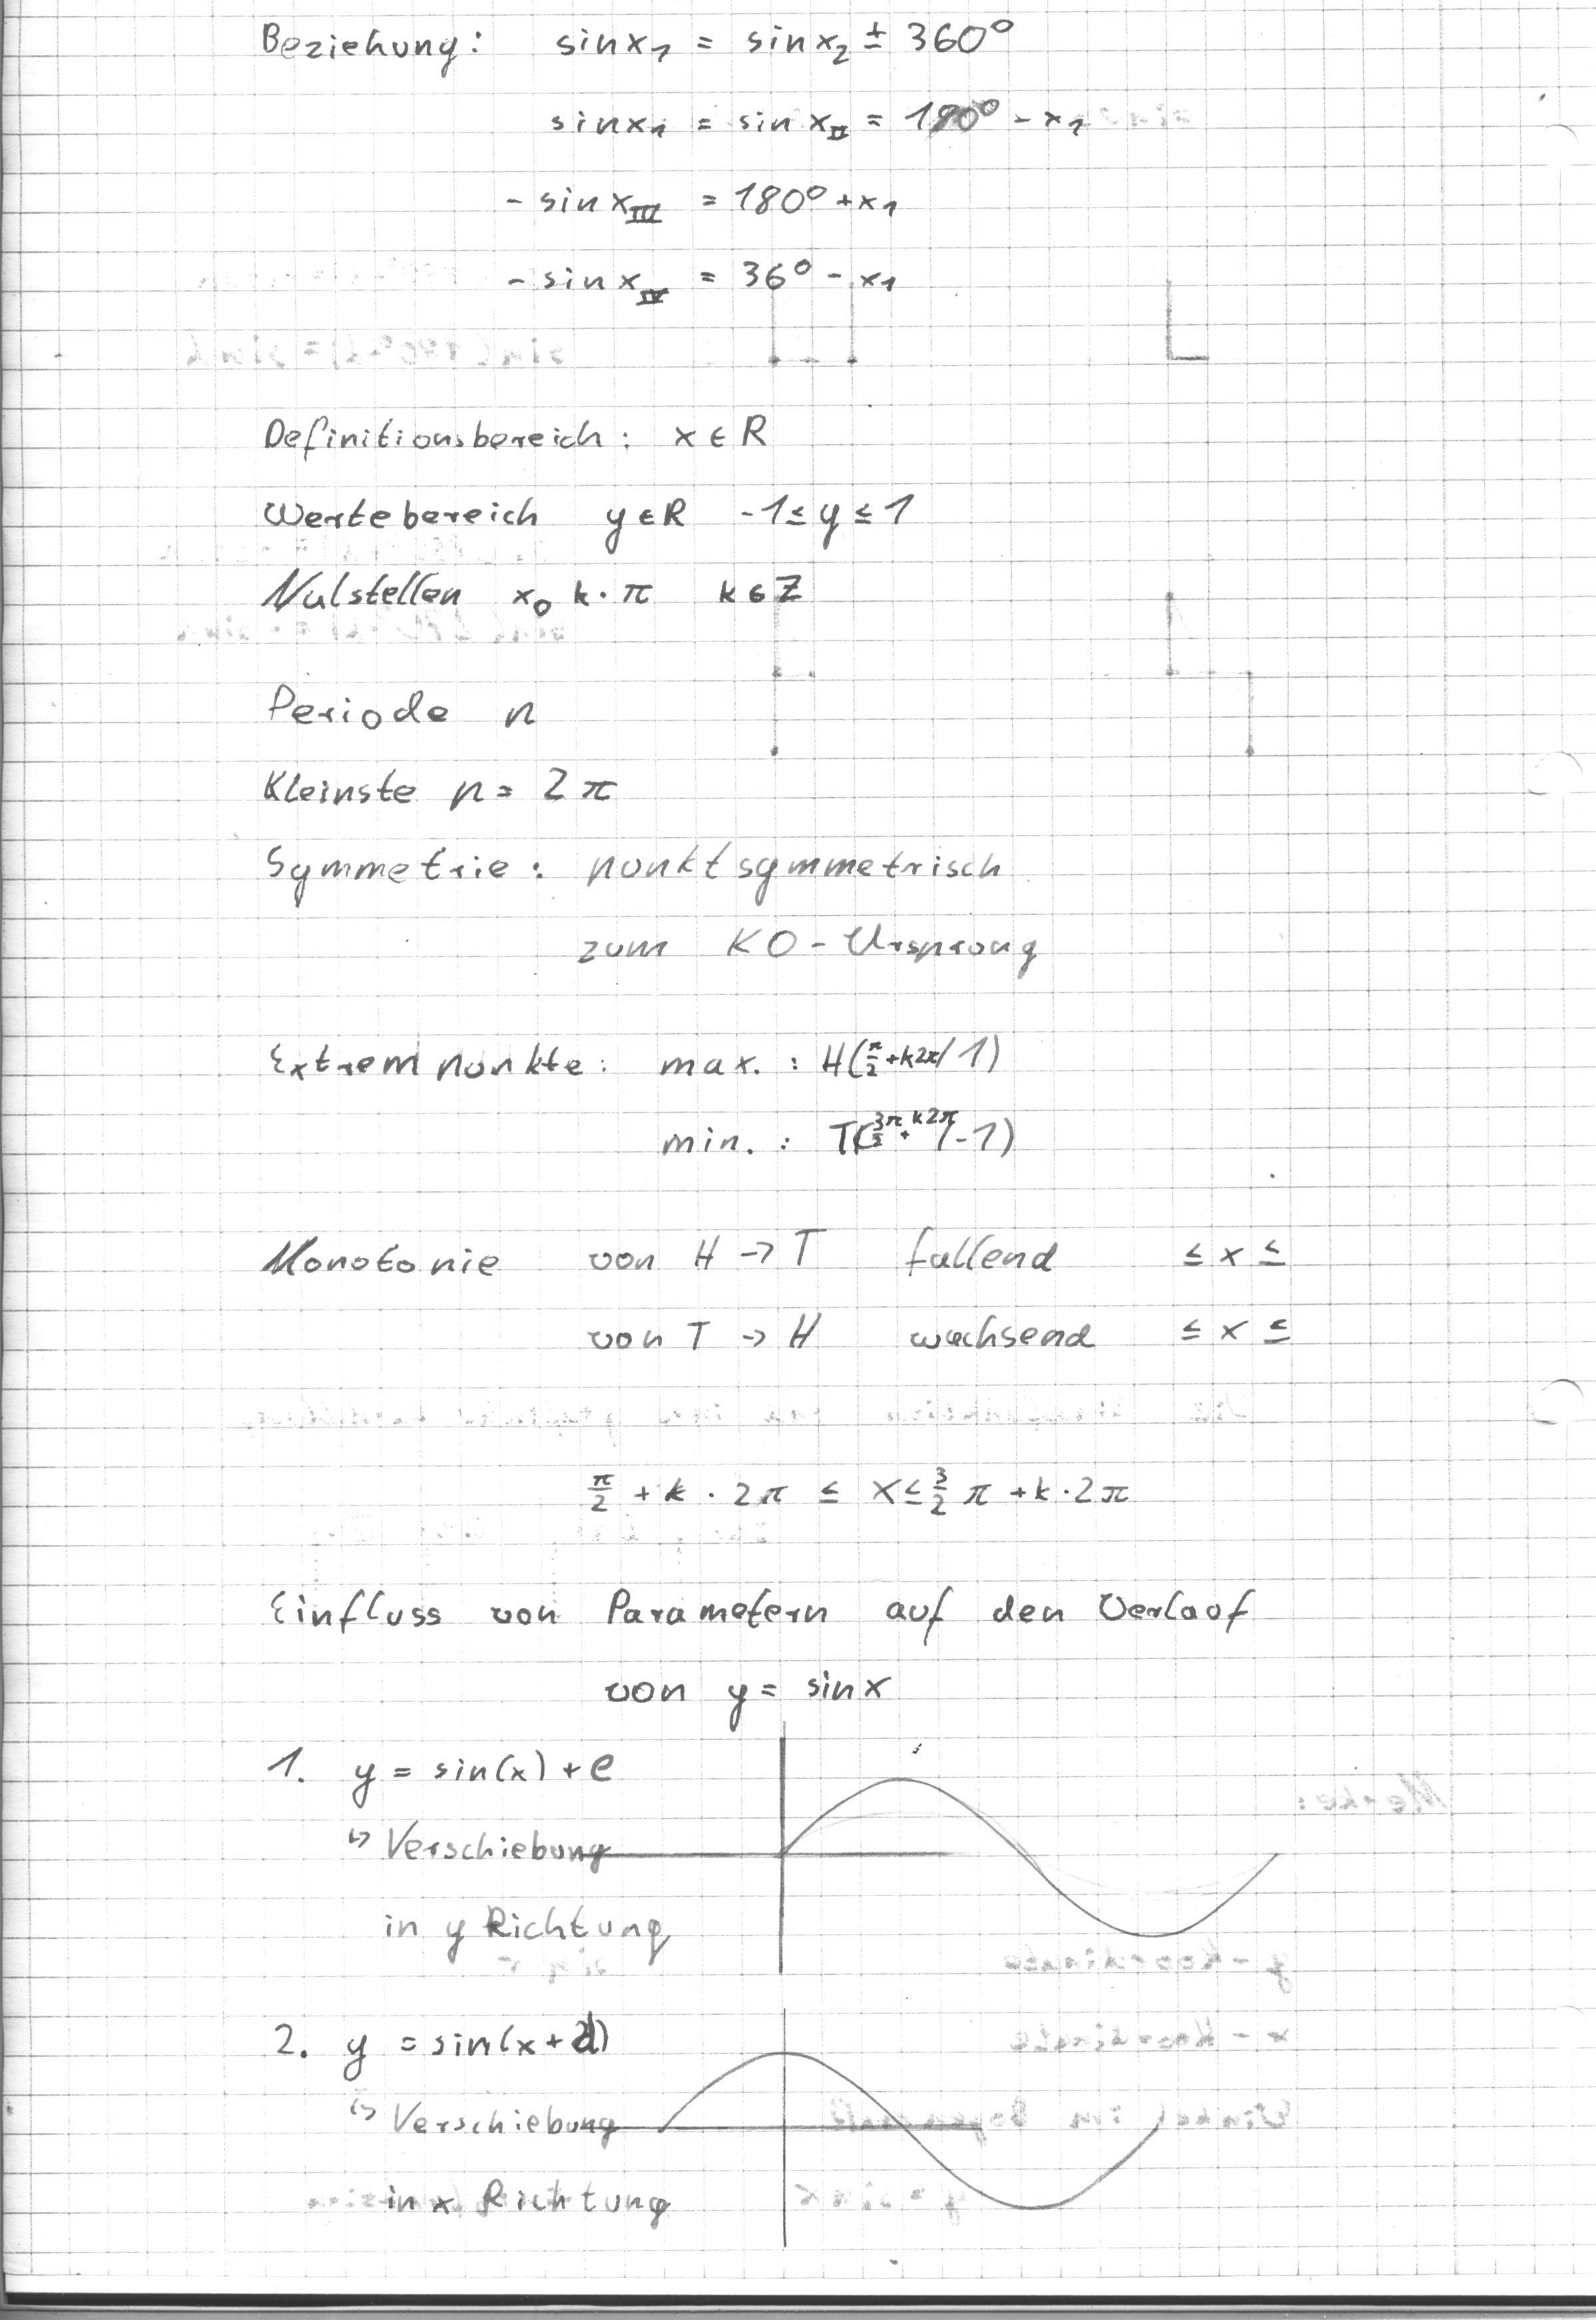 Beziehung: sin x₁ = sin x₂ ± 360°
sin x₁ = sin x_II = 180° - x₁
- sin x_III = 180° + x₁
- sin x_IV = 36° - x₁
Definitionsbereich: x ∈ R
Wertebereich y ∈ R -1 ≤ y ≤ 1
Nulstellen x₀ k · π k ∈ Z
Periode p
Kleinste p = 2 π
Symmetrie: punktsymmetrisch
zum KO - Ursprung
Extrempunkte: max. : H(π/2 + k2π / 1)
min. : T(3π/2 + k2π / -1)
Monotonie von H → T fallend ≤ x ≤
von T → H wachsend ≤ x ≤
π/2 + k · 2π ≤ x ≤ 3/2 π + k · 2π
Einfluss von Parametern auf den Verlauf
von y = sin x
1. y = sin(x) + e
↳ Verschiebung
in y Richtung
2. y = sin(x + d)
↳ Verschiebung
in x Richtung